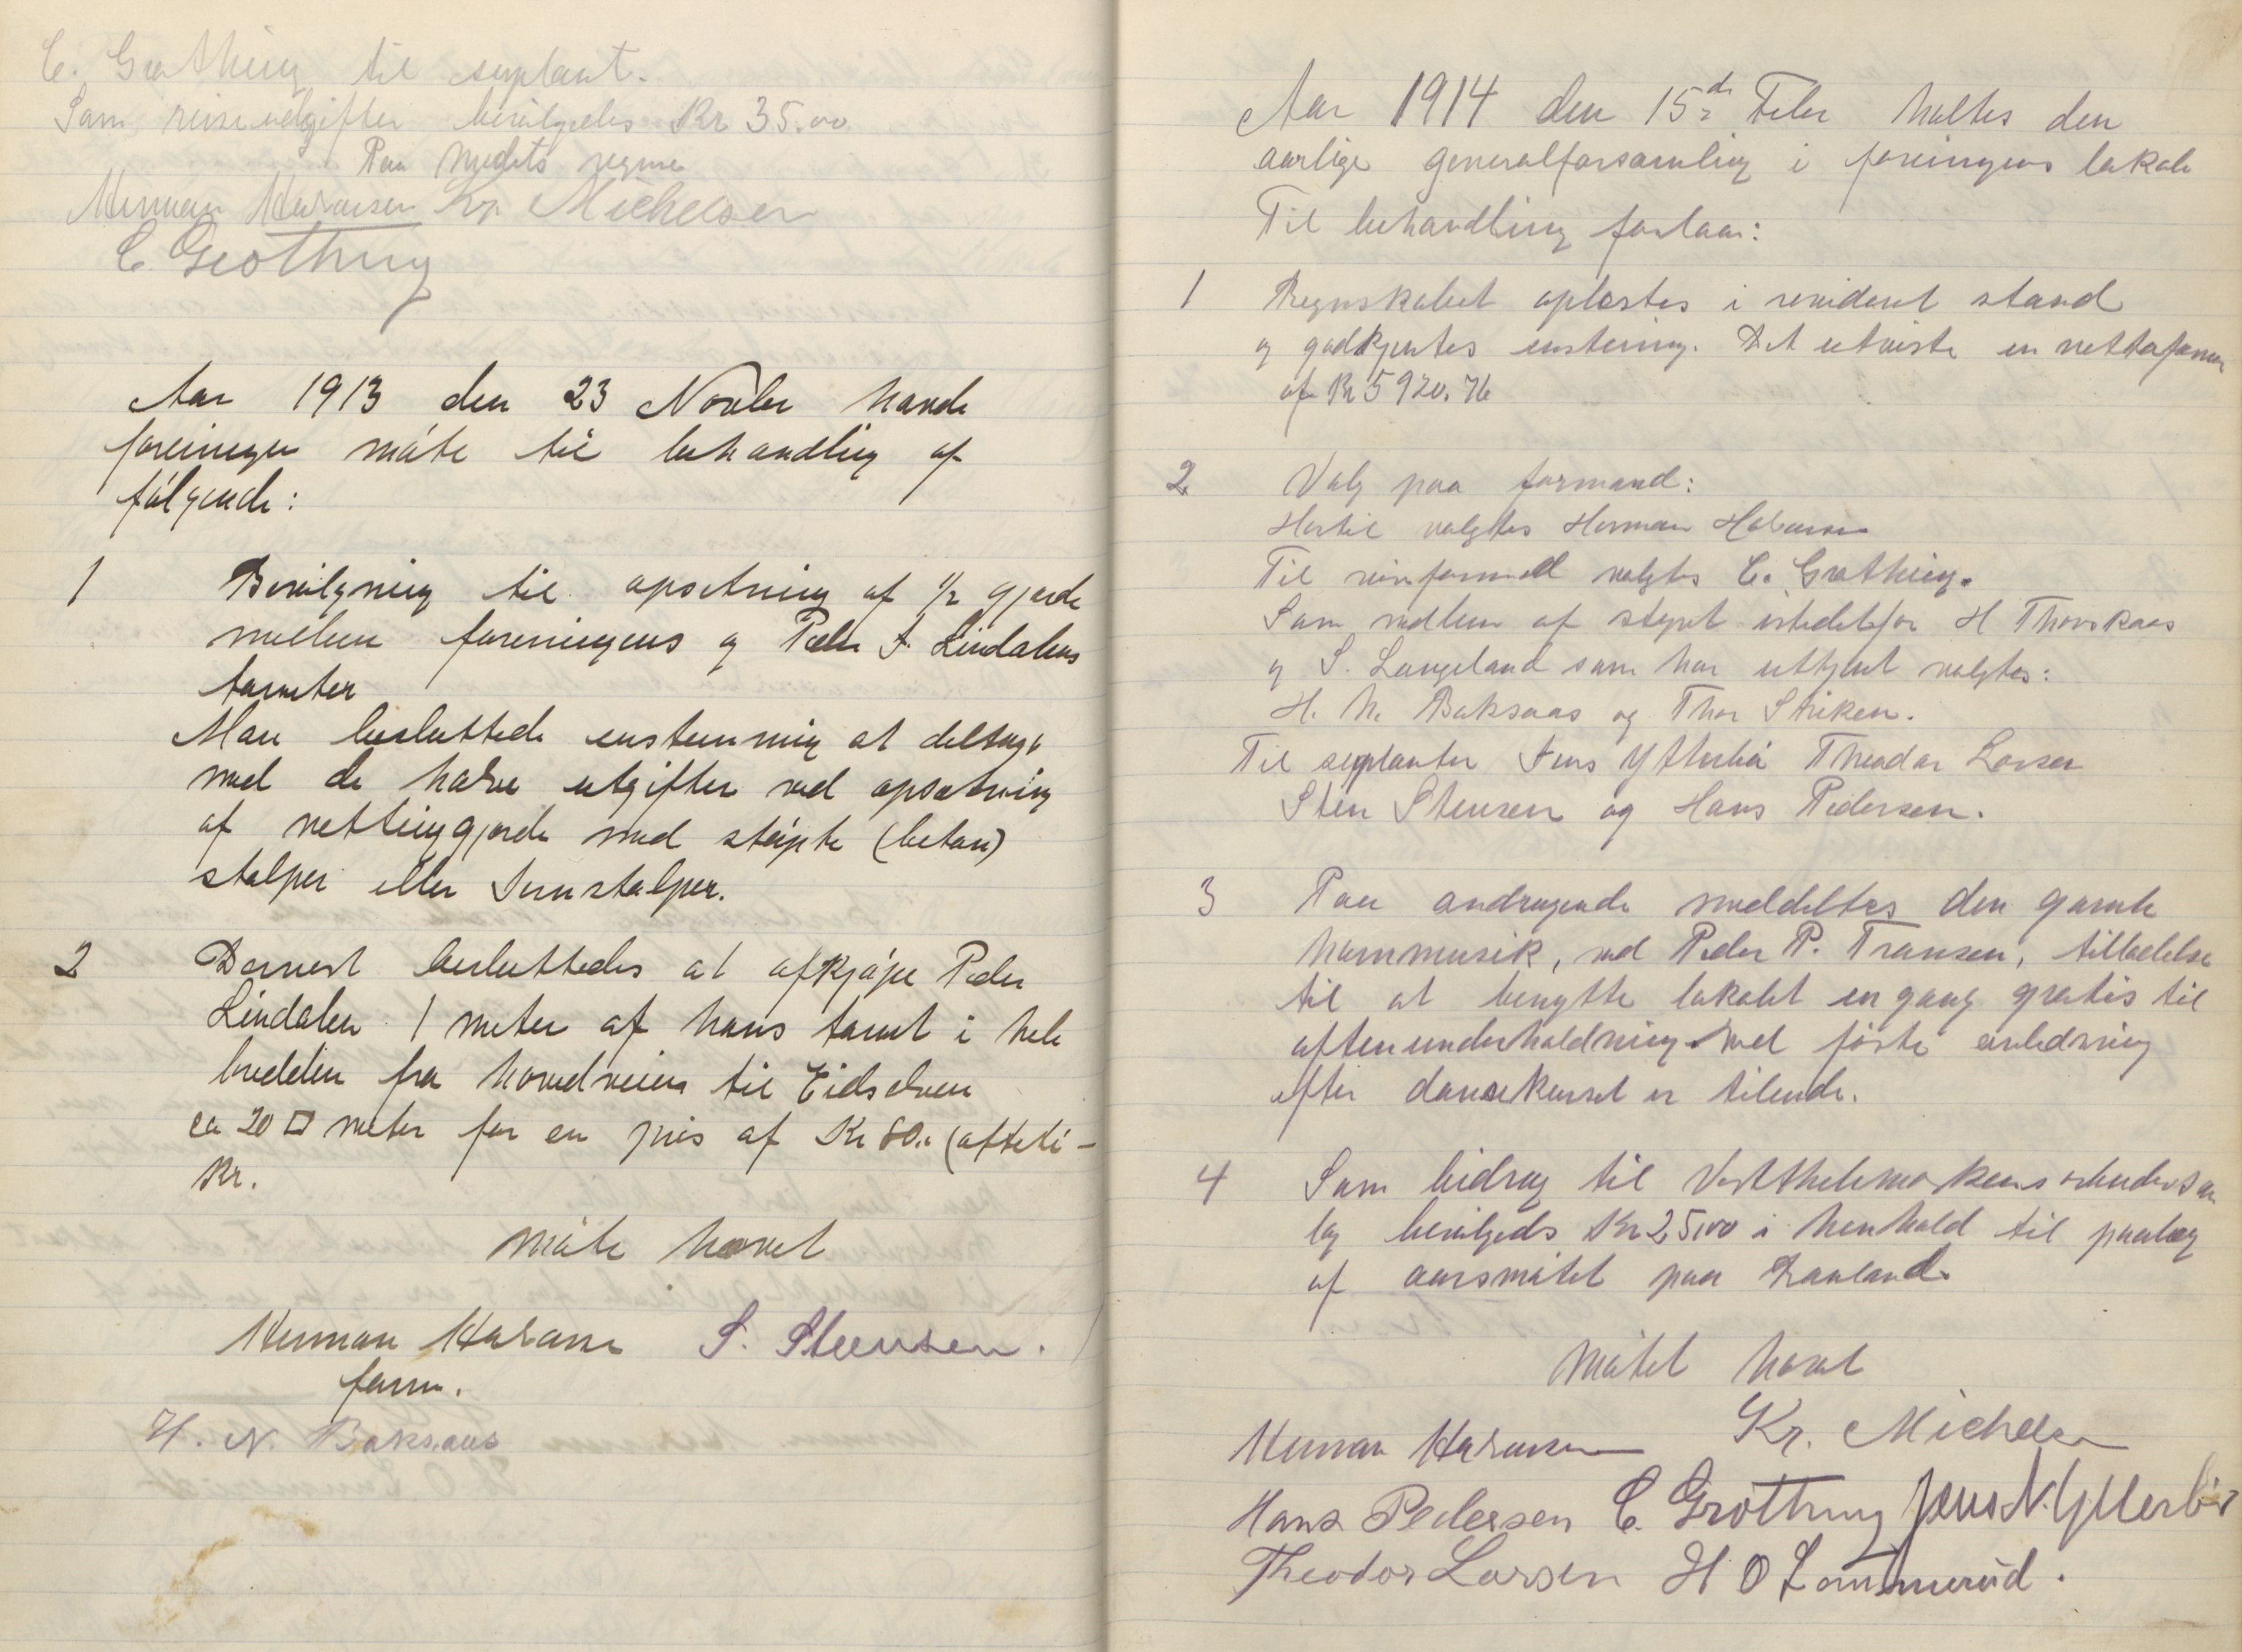 C. Grøthing til suplant.
Som reiseudgifter bevilgedes Kr 35.00
Paa mødets vegne
Herman Halvorsen Kr. Michelsen
C. Grøthing
Aar 1913 den 23 Novbr havde
foreningen møte til behandling af
følgende:
1 Bevilgning til opsetning af 1/2 gjerde
mellem foreningens og Peder J. Lindalens
tomter
Man besluttede enstemmig at deltage
med de halve utgifter ved opsetning
af nettinggjerde med støpte (beton)
stolper eller Jernstolper.
2 Dernest besluttedes at afkjøpe Peder
Lindalen 1 meter af hans tomt i hele
bredden fra hovedveien til Eidselven
ca 20 □ meter for en pris af Kr 80.. (otteti-
Kr.
Møte hævet
Herman Halvorsen S. Steensen.
form.
H. N. Baksaas
Aar 1914 den 15de Febr holtes den
aarlige generalforsamling i foreningens lokale
Til behandling forelaa:
1 Regnskabet oplæstes i revideret stand
og godkjentes enstemig. Det utviste en nettoformue
af Kr 5920.76
2 Valg paa formand:
Hertil valgtes Herman Halvorsen
Til viseformand valgtes C. Grøthing.
Som medlem af styret istedetfor H Thorskaas
og S. Langeland som har uttjent valgtes:
H. N. Baksaas og Thor Stiken.
Til suplanter Jens Ytterbø Theodor Larsen
Sten Stensen og Hans Pedersen.
3 Paa andragende meddeltes den gamle
hornmusik, ved Peder P. Transen, tilladelse
til at benytte lokalet en gang gratis til
aftenunderholdning ved første anledning
efter dansekurset er tilende.
4 Som bidrag til Vestthelemarkens arbeidersam
lag bevilgeds Kr 25,00 i henhold til paalæg
af aarsmøtet paa Dauland.
Møtet hævet
Herman Halvorsen Kr. Michelsen
Hans Pedersen C. Grøthing Jens N. Ytterbø
Theodor Larsen H O Lommerud.